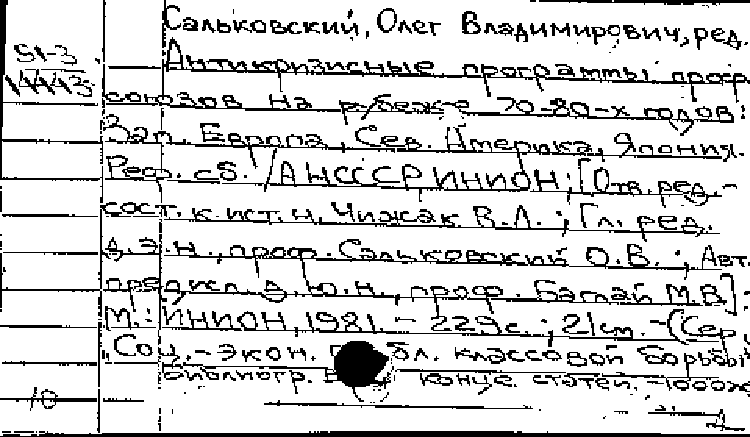 Сальковский, Олег Владимирович, ред.
51-3
14413
Антикризисные программы проф
союзов на рубеже 70-80-х годов:
Зап. Европа, Сев. Америка, Япония.
Реф. сб. / АН СССР ИНИОН; [Отв. ред.-
сост. к. ист. н. Чижак В.Л.; Гл. ред.
д.э.н., проф. Сальковский О.В.; Авт.
предисл. д.ю.н., проф. Баглай М.В.].-
М.: ИНИОН, 1981. - 229 с.; 21 см. - (Сер.
"Соц.-экон. бл. классовой борьбы
Библиогр. в конце статей. - 1000
10